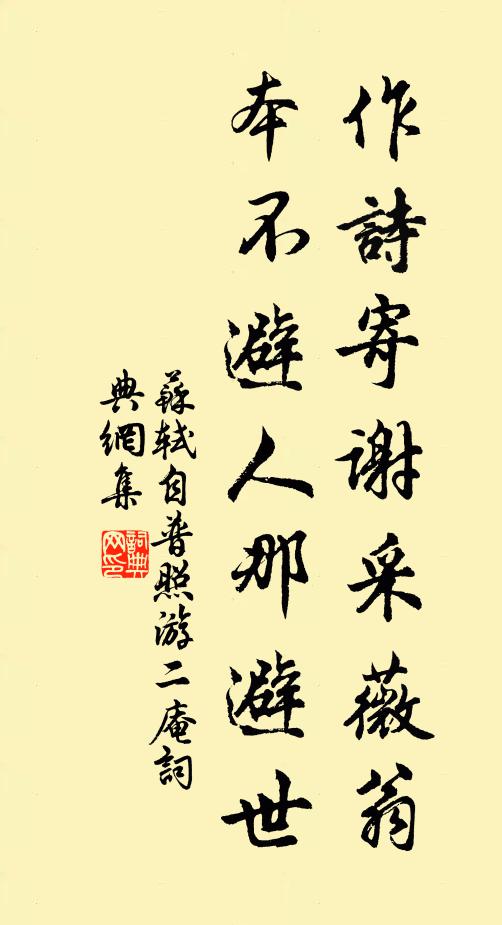 作詩寄謝采薇翁
本不避人那避世
蘇軾自普照游二庵詞
典網集
詞典网印